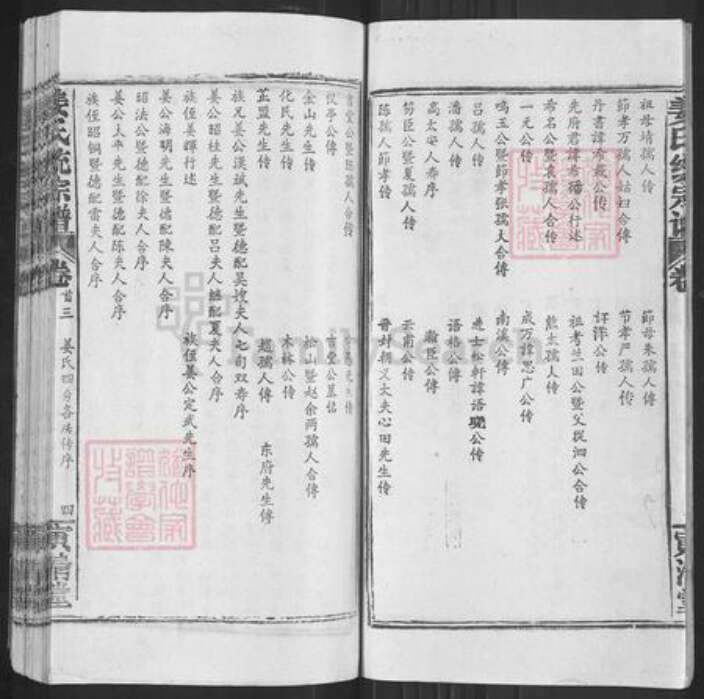 祖母靖孺人传
節母朱孺人傳
節孝万孺人姑妇合傳
节孝严孺人传
丹書諱布薮公传
訏泮公传
先府君諱布璠公行述
祖考竺田公暨父從泗公合传
希名公暨袁孺人合传
熊孺人传
一元公传
成万諱思广公传
鸣玉公暨節孝张孺人合傳
南溪公傳
吕孺人传
進士松軒諱語公传
潘孺人传
语格公傳
高太安人寿序
瀚臣公傳
笏臣公暨夏孺人传
云甫公傳
陈孺人節孝传
晋封朝义大夫心田先生传
言堂公暨孺人合傳
先生传
仪亭公传
言堂公墓志
金山先生传
松山暨赵余两孺人合傳
化民先生传
木林公传
芷盟先生传
赵孺人傳
东府先生傳
族兄姜公漢斌先生暨德配吴嫂夫人七旬双寿序
姜公昭桂先生暨德配吕夫人继配夏夫人合序
族侄姜輝行述
族侄姜公定武先生序
姜公海明先生暨德配陳夫人合序
昭法公暨德配徐夫人合序
姜公太平先生暨德配陈夫人合序
族侄昭铜暨德配雷夫人合序
姜氏统宗谱
卷首三
姜氏四分各房传序
四